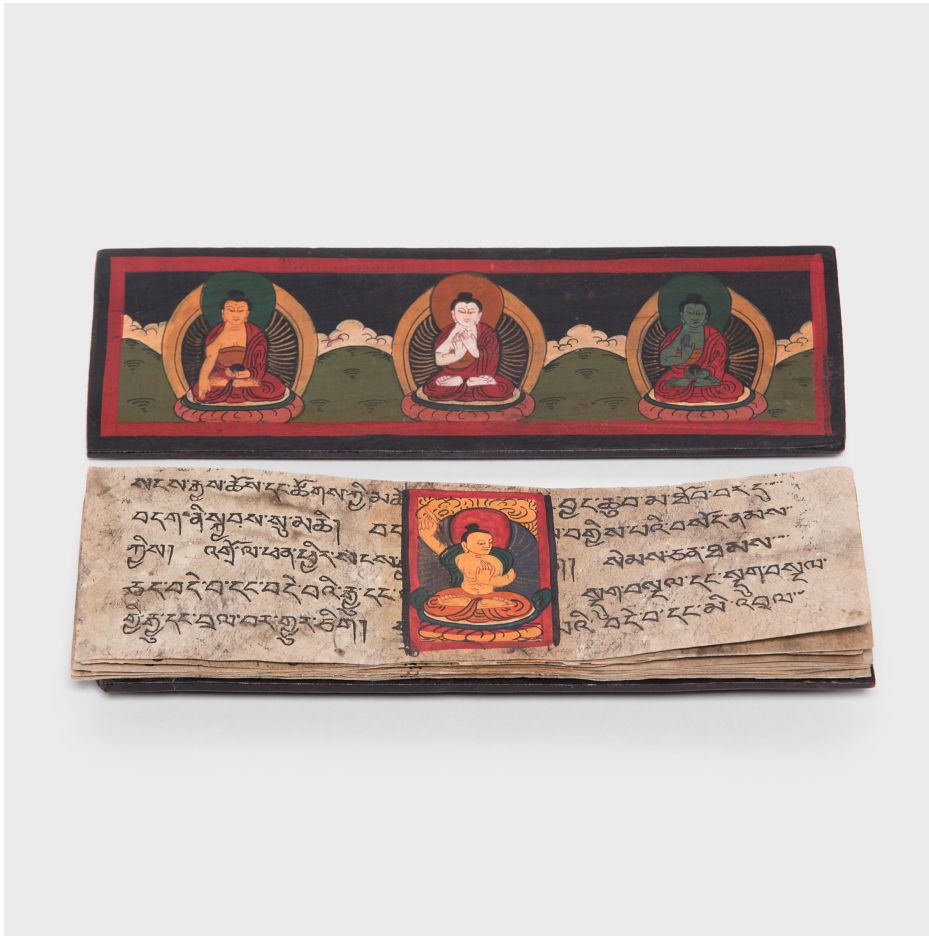 སངས་རྒྱས་ཚོས་དང་ཚོགས་ཀྱི་ བྱང་ཆུབ་མ་ཐོབ་བར་དུ་
བདག་ནི་སྐྱབས་སུ་མཆི། བགྱིས་པའི་བསོད་ནམས་
ཀྱིས། འགྲོ་ལ་ཕན་ཕྱིར་སངས་ །། སེམས་ཅན་ཐམས་
ཅད་བདེ་བ་དང་བདེ་བའི་རྒྱུ་དང་ སྡུག་བསྔལ་དང་སྡུག་བསྔལ་
གྱི་རྒྱུ་དང་བྲལ་བར་གྱུར་ཅིག།། བདེ་བ་དང་མི་འབྲལ་